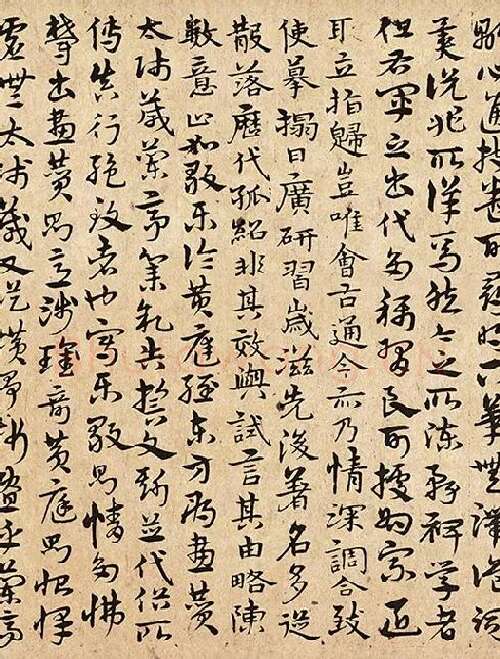 顯心通披卷可明下筆無滯詭辭
異說非所詳焉然今之所陳務裨學者
但右軍之書代多稱習良可據為宗匠
取立指歸豈唯會古通今亦乃情深調合致
使摹搨日廣研習歲滋先後著名多從
散落歷代孤紹非其效與試言其由略陳
數意止如樂毅論黃庭經東方朔畫贊
太師箴蘭亭集序告誓文斯並代俗所
傳真行絕致者也寫樂毅則情多怫
鬱書畫贊則意涉瑰奇黃庭則怡懌
虛無太師箴又縱橫爭折暨乎蘭亭